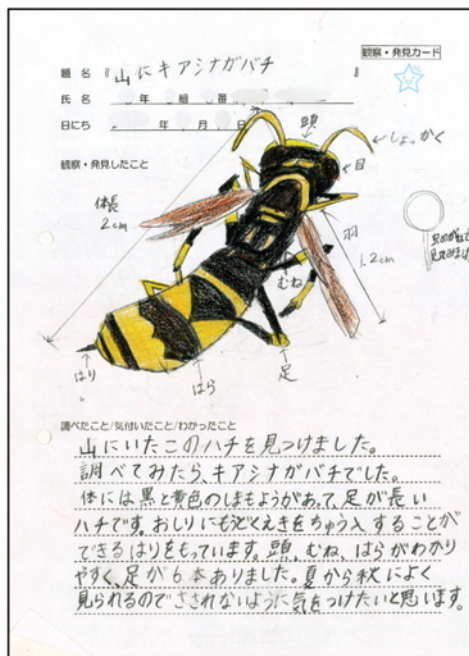 観察・発見カード
題名『山にキアシナガバチ』
氏名 年 組 番
日にち 年 月 日
観察・発見したこと
頭
しょっかく
目
体長
2cm
羽
1.2cm
むね
はり
はら
足
調べたこと/気付いたこと/わかったこと
山にいたこのハチを見つけました。
調べてみたら、キアシナガバチでした。
体には黒と黄色のしまもようがあって、足が長い
ハチです。おしりにもどくえきをちゅう入することが
できるはりをもっています。頭、むね、はらがわかり
やすく、足が6本ありました。夏から秋によく
見られるのでさされないように気をつけたいと思います。